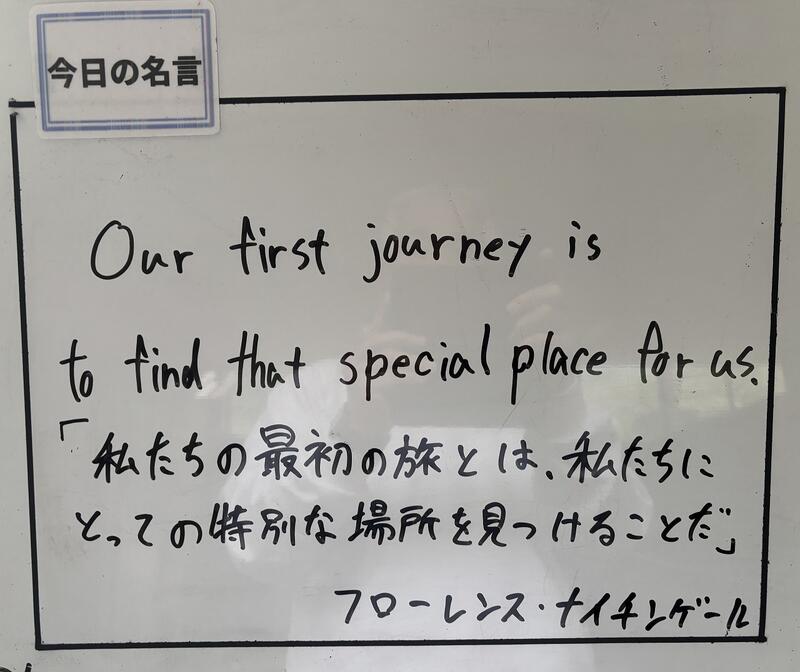 今日の名言
Our first journey is
to find that special place for us.
「私たちの最初の旅とは、私たちに
とっての特別な場所を見つけることだ」
フローレンス・ナイチンゲール